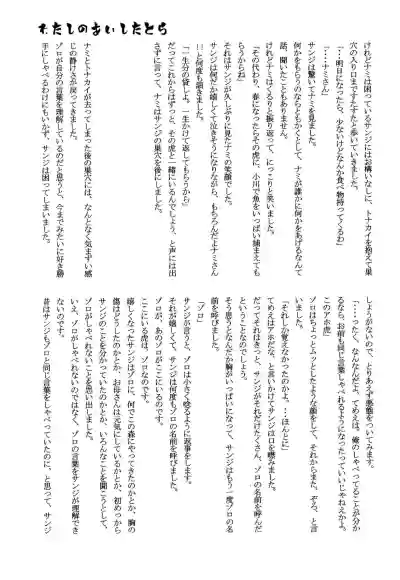 わたしのあいしたとら
けれどナミは困っているサンジにはお構いなしに、トナカイを抱えて巣
穴の入り口まですたすたと歩いていきました。
「・・・明日になったら、少ないけどなんか食べ物持ってくるわ」
「・・・ナミさん」
サンジは驚いてナミを見ました。
何かをもらうのならともかくとして、ナミが誰かに何かをあげるなんて
話、聞いたこともありません。
けれどナミはくるりと振り返って、にっこりと笑いました。
「その代わり、春になったらその虎に、小川で魚をいっぱい捕まえても
らうからね」
それはサンジが久しぶりに見たナミの笑顔でした。
サンジは何だか嬉しくて泣きそうになりながら、もちろんだよナミさん
！！と何度も頷きました。
「一生分の貸しよ。一生かけて返してもらうから」
だってこれからはずっと、その虎と一緒にいるんでしょう、と声には出
さずに言って、ナミはサンジの巣穴を後にしました。
ナミとトナカイが去ってしまった後の巣穴には、なんとなく気まずい感
じの静けさが戻ってきました。
ゾロが自分の言葉を理解しているのだと思うと、今までみたいに好き勝
手にしゃべるわけにもいかず、サンジは困ってしまいました。
しょうがないので、とりあえず悪態をついてみます。
「・・・ったく、なんなんだよ、てめえは。俺のしゃべってることが分か
るなら、お前も同じ言葉しゃべれるようになったっていいじゃねえかよ。
このアホ虎」
ゾロはちょっとムッとしたような顔をして、それからまた、ぞろ、と言
いました。
「それしか覚えなかったのかよ。・・・ほんとに」
てめえはアホだな、と言いかけてサンジは口を噤みました。
だってそれはきっと、サンジがそれだけたくさん、ゾロの名前を呼んだ
ということなのでしょう。
そう思うとなんだか胸がいっぱいになって、サンジはもう一度ゾロの名
前を呼びました。
「ゾロ」
サンジが言うと、ゾロは小さく唸るように返事をします。
それが嬉しくて、サンジは何度もゾロの名前を呼びました。
ゾロが、あのゾロがここにいるのです。
ここにいる虎は、ゾロなのです。
嬉しくなったサンジはゾロに、何でこの森にやってきたのかとか、胸の
傷はどうしたのかとか、お母さんは元気にしているかとか、初めっから
サンジのことを分かっていたのかとか、いろんなことを聞こうとして、
ゾロがしゃべれないことを思い出しました。
いえ、ゾロがしゃべれないのではなく、ゾロの言葉をサンジが理解でき
ないのです。
昔はサンジもゾロと同じ言葉をしゃべっていたのに、と思って、サンジ